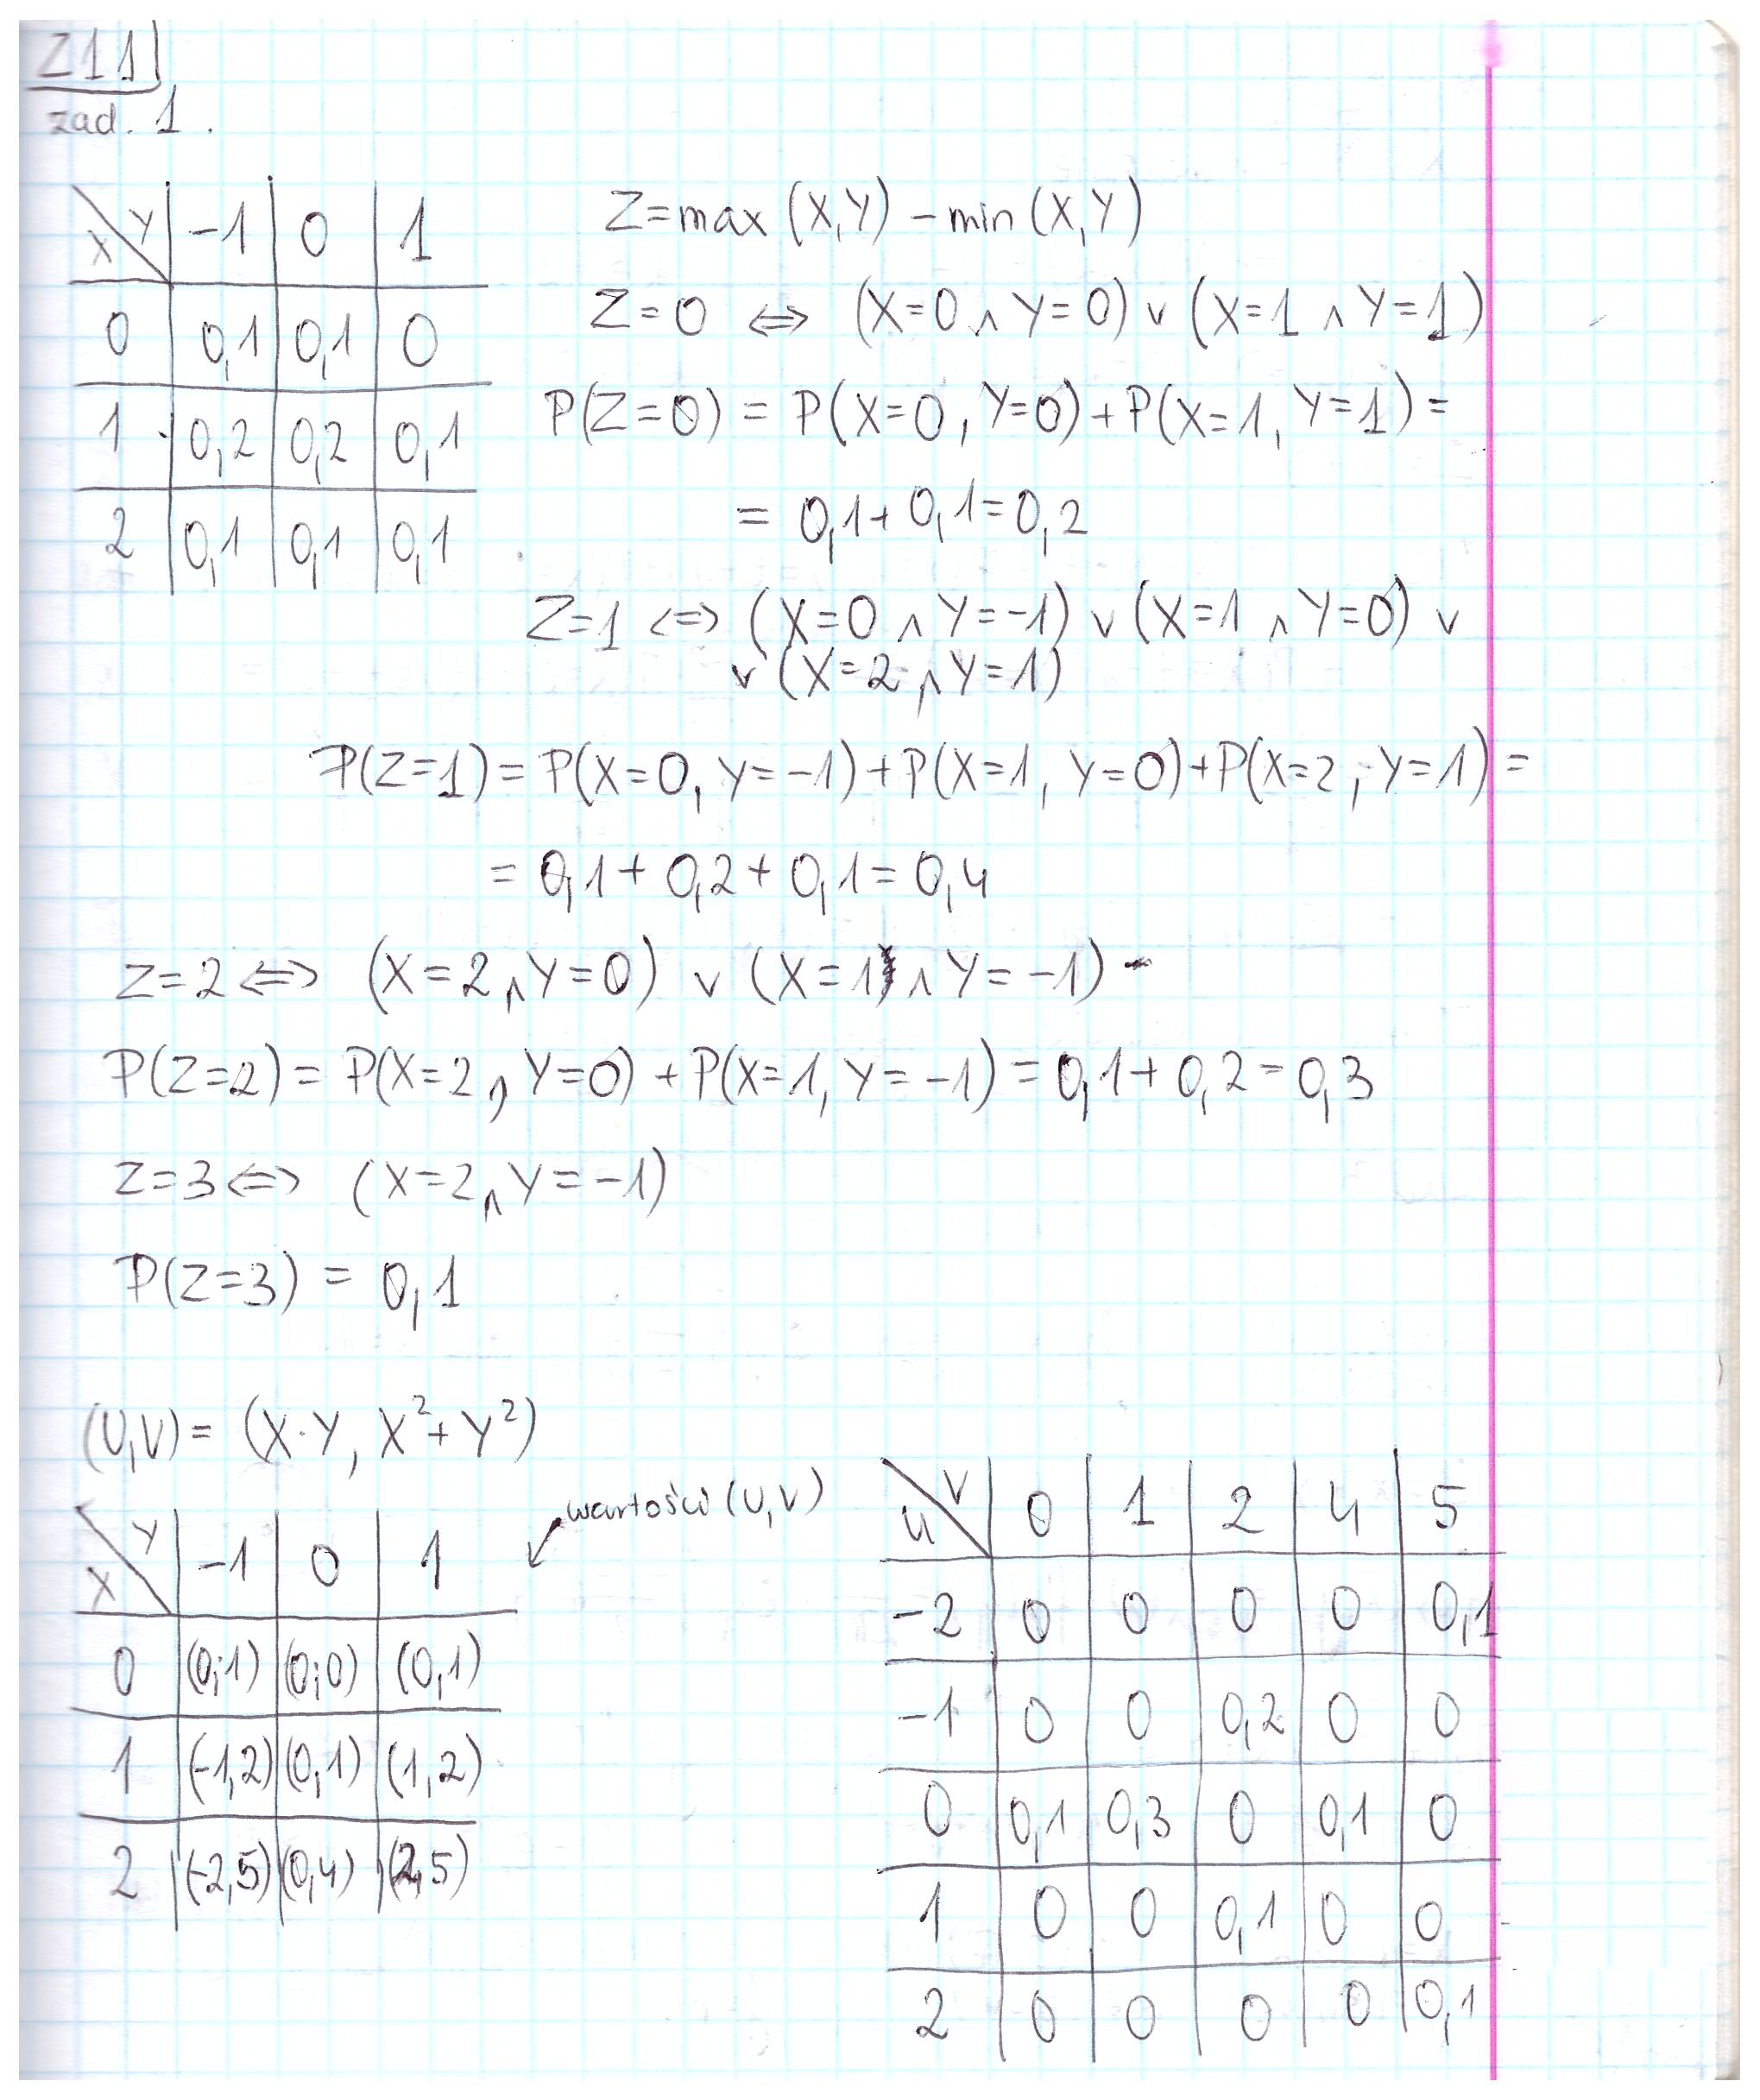 Z11
zad. 1.
X\Y | -1 | 0 | 1
0 | 0,1 | 0,1 | 0
1 | 0,2 | 0,2 | 0,1
2 | 0,1 | 0,1 | 0,1
Z=max (X,Y) - min (X,Y)
Z=0 ⇔ (X=0 ∧ Y=0) ∨ (X=1 ∧ Y=1)
P(Z=0) = P(X=0, Y=0) + P(X=1, Y=1) =
= 0,1 + 0,1 = 0,2
Z=1 ⇔ (X=0 ∧ Y=-1) ∨ (X=1 ∧ Y=0) ∨
∨ (X=2 ∧ Y=1)
P(Z=1) = P(X=0, Y=-1) + P(X=1, Y=0) + P(X=2, Y=1) =
= 0,1 + 0,2 + 0,1 = 0,4
Z=2 ⇔ (X=2 ∧ Y=0) ∨ (X=1 ∧ Y=-1)
P(Z=2) = P(X=2, Y=0) + P(X=1, Y=-1) = 0,1 + 0,2 = 0,3
Z=3 ⇔ (X=2 ∧ Y=-1)
P(Z=3) = 0,1
(U,V) = (X·Y, X²+Y²)
wartości (U,V)
X\Y | -1 | 0 | 1
0 | (0;1) | (0;0) | (0,1)
1 | (-1,2) | (0,1) | (1,2)
2 | (-2,5) | (0,4) | (2,5)
U\V | 0 | 1 | 2 | 4 | 5
-2 | 0 | 0 | 0 | 0 | 0,1
-1 | 0 | 0 | 0,2 | 0 | 0
0 | 0,1 | 0,3 | 0 | 0,1 | 0
1 | 0 | 0 | 0,1 | 0 | 0
2 | 0 | 0 | 0 | 0 | 0,1